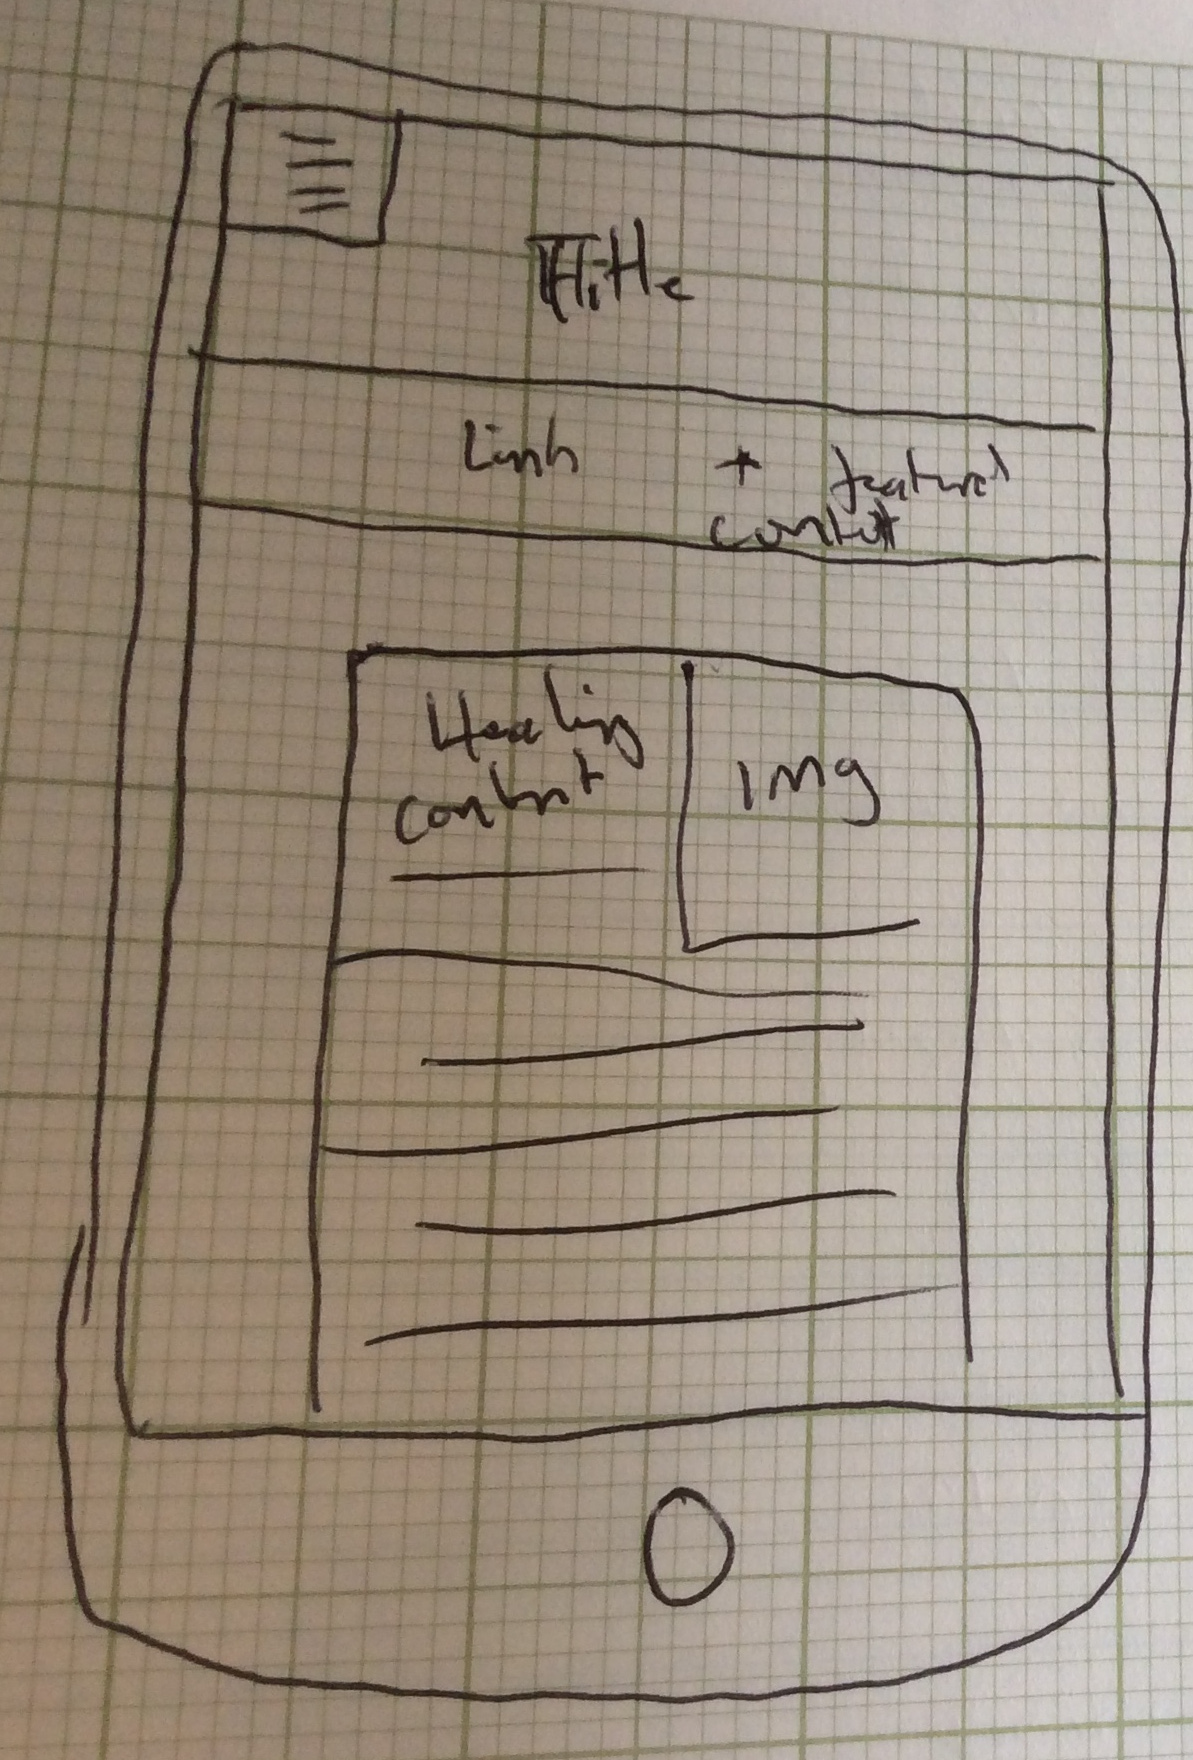 Title
Link + featured
content
Heading
content
img